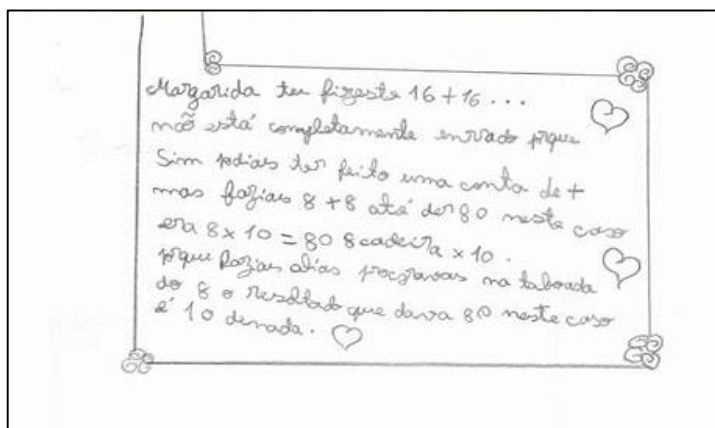 Margarida tu fizeste 16+16...
não está completamente errado pque
Sim podias ter feito uma conta de +
mas fazias 8 + 8 até der 80 neste caso
era 8 x 10 = 80 8 cadeira x 10.
pque fazias alias procuravas na taboada
do 8 o resoltado que dava 80 neste caso
é 10 denada.